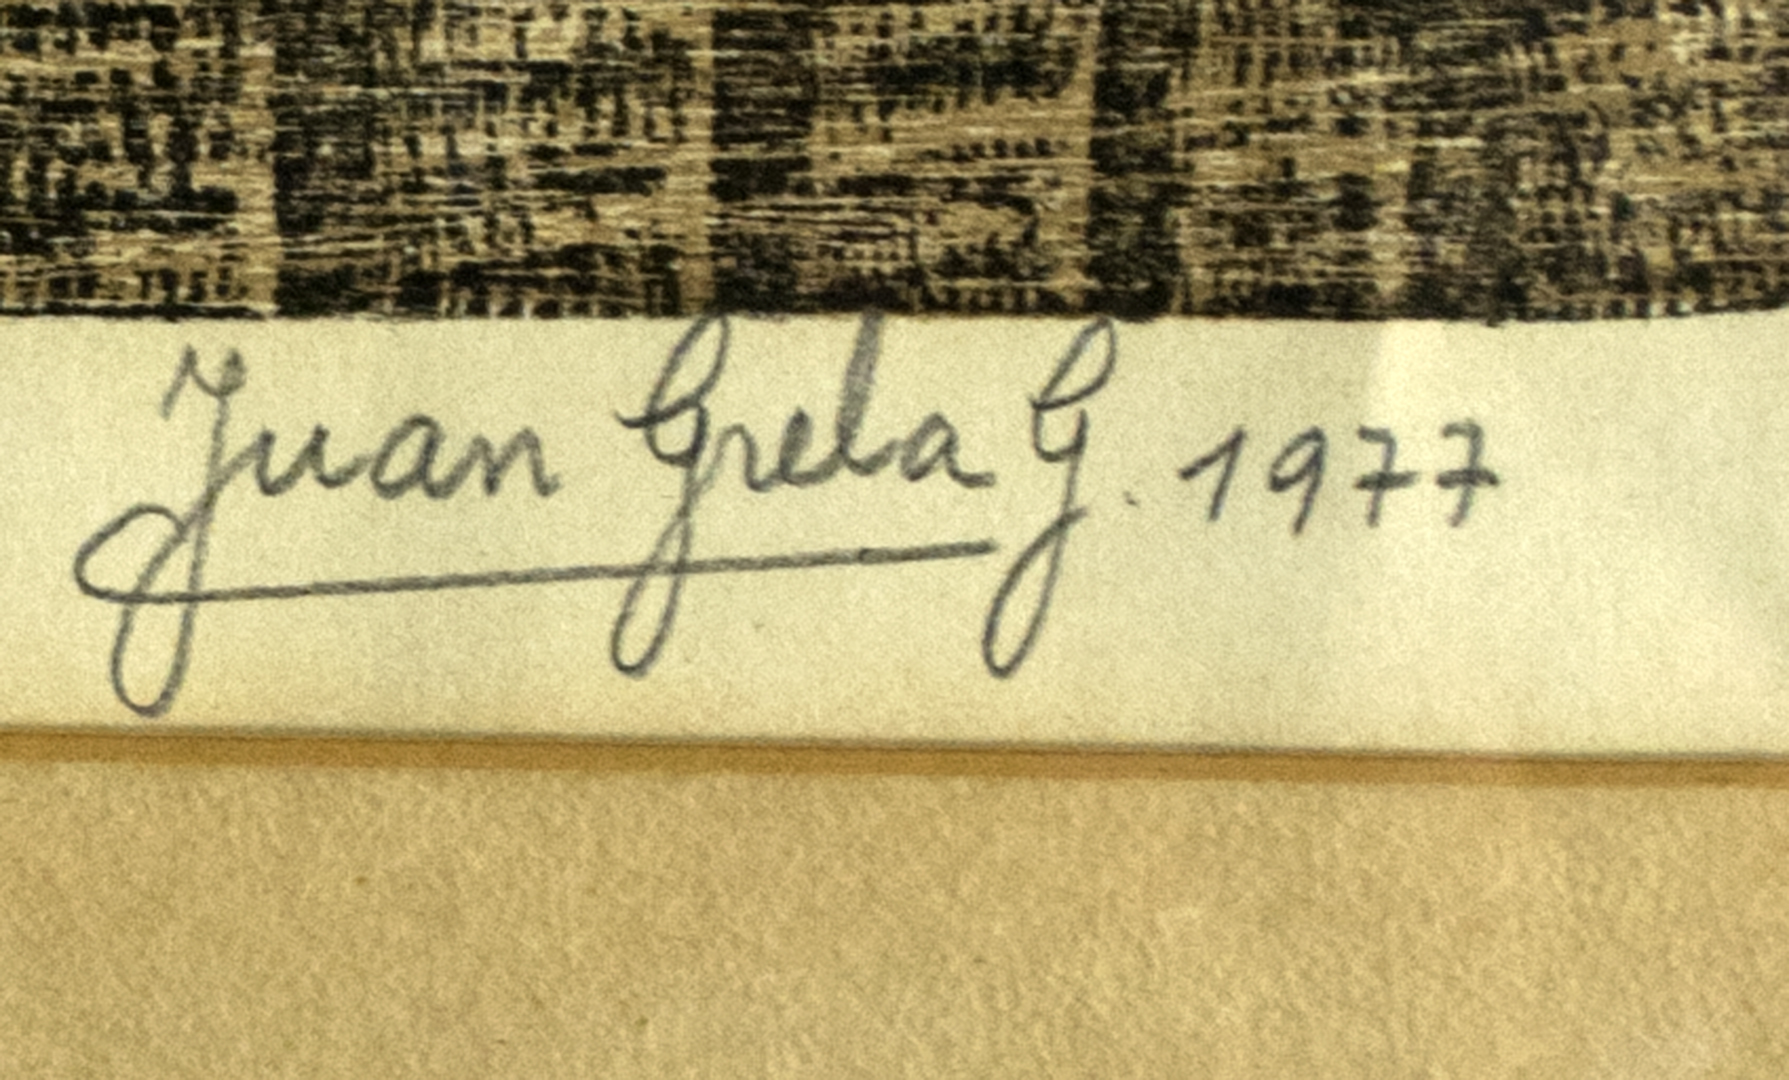 Juan Grela G. 1977